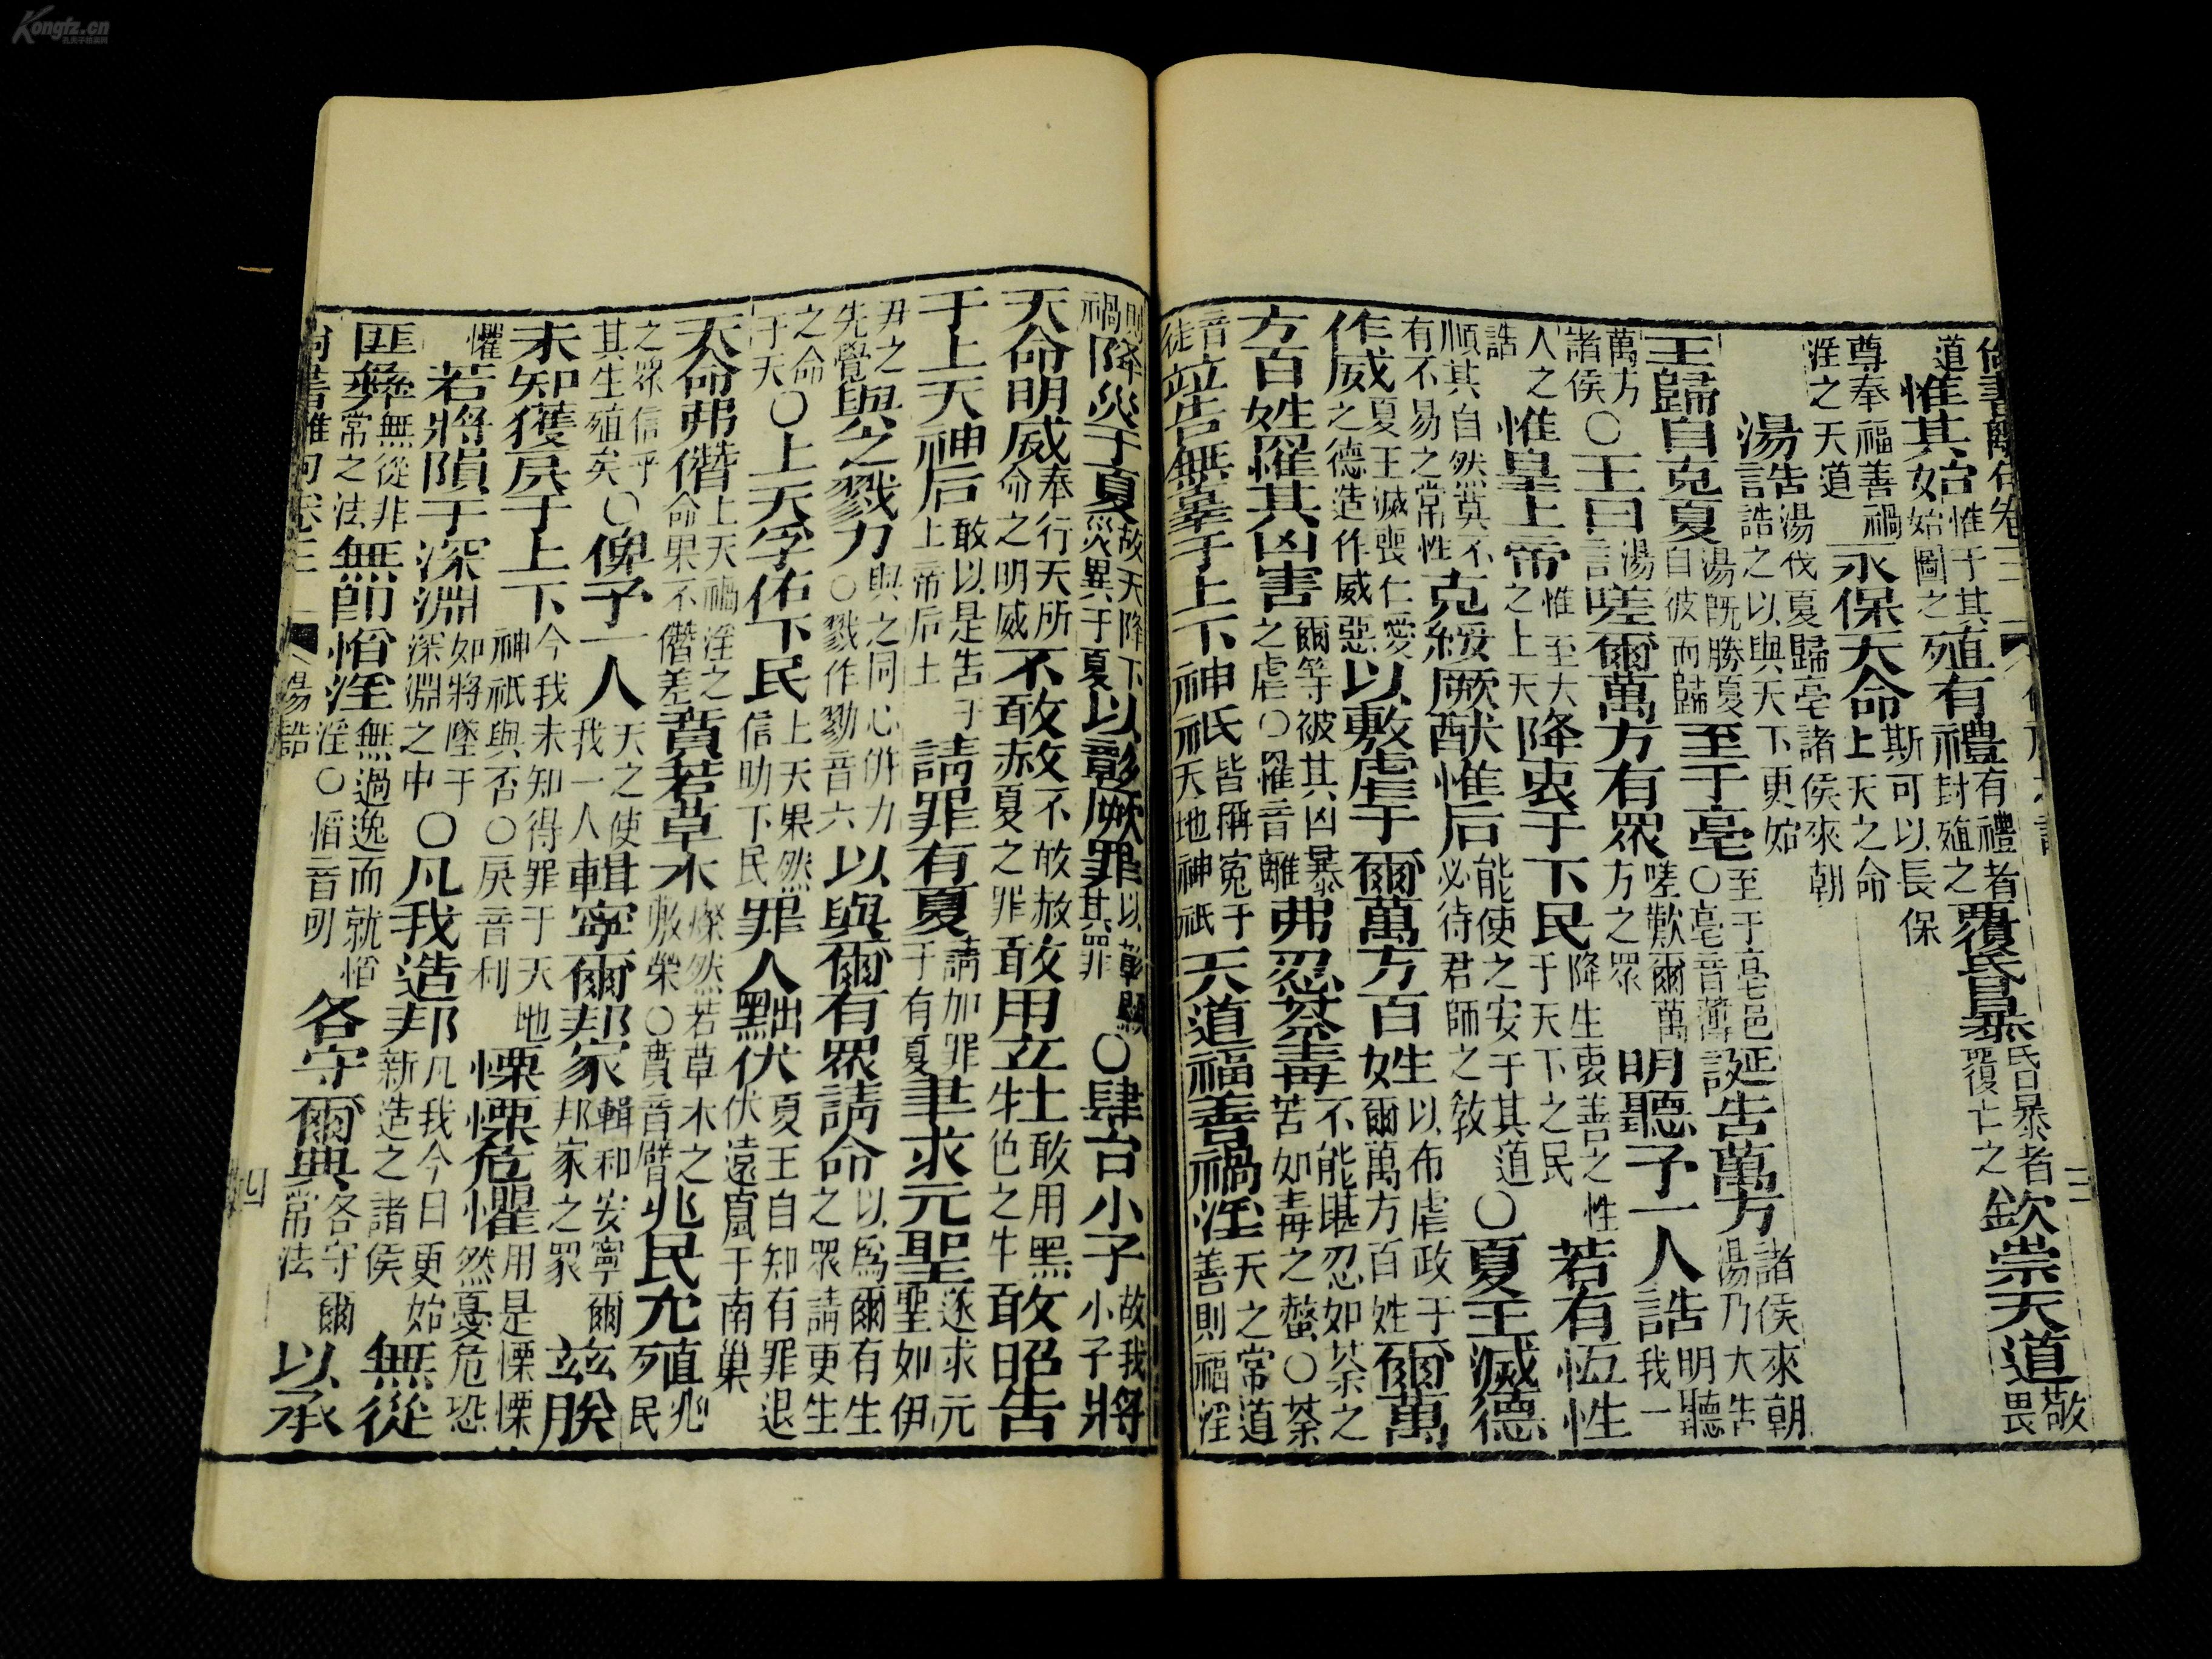 Kongfz.cn
尚書離句卷三
三
道惟其始惟于其始始圖之殖有禮有禮者封殖之覆昏暴昏暴者覆亡之欽崇天道敬畏
尊奉福善禍淫之天道永保天命斯可以長保上天之命
湯誥湯伐夏歸亳諸侯來朝誥之以與天下更始
王歸自克夏湯既勝夏自彼而歸至于亳至于亳邑○亳音薄誕告萬方諸侯來朝湯乃大告
萬方諸侯○王曰湯言嗟爾萬方有眾嗟歎爾萬方之眾明聽予一人誥明聽我一
人之誥惟皇上帝惟至大之上天降衷于下民降生衷善之性于天下之民若有恆性
順其自然莫不有不易之常性克綏厥猷惟后能使之安于其道必待君師之教○夏王滅德
作威夏王滅喪仁愛之德造作威惡以敷虐于爾萬方百姓以布虐政于爾萬方百姓爾萬
方百姓罹其凶害爾等被其凶暴之虐○罹音離弗忍荼毒不能堪忍如荼之苦如毒之螫○荼
音徒並告無辜于上下神祇皆稱冤于天地神祇天道福善禍淫天之常道善則福淫
則禍降災于夏故天降下災異于夏以彰厥罪以彰顯其罪○肆台小子故我小子將
天命明威奉行天所命之明威不敢赦不敢赦夏之罪敢用玄牡敢用黑色之牛敢昭告
于上天神后敢以是告于上帝后土請罪有夏請加罪于有夏聿求元聖遂求元聖如伊
尹之先覺與之戮力與之同心併力○戮作勠音六以與爾有眾請命以為爾有生之眾請更生
之命于天○上天孚佑下民上天果然信助下民罪人黜伏夏王自知有罪退伏遠竄于南巢
天命弗僭上天禍淫之命果不僭差賁若草木燦然若草木之敷榮○賁音臂兆民允殖兆民
之眾信乎其生殖矣○俾予一人天之使我一人輯寧爾邦家輯和安寧爾邦家之眾茲朕
未知獲戾于上下今我未知得罪于天地神祇與否○戾音利慄慄危懼用是慄慄然憂危恐
懼若將隕于深淵如將墜于深淵之中○凡我造邦凡我今日更始新造之諸侯無從
匪彝無從非常之法無即慆淫無過逸而就慆淫○慆音叨各守爾典各守爾常法以承
尚書離句卷三
湯誥
四